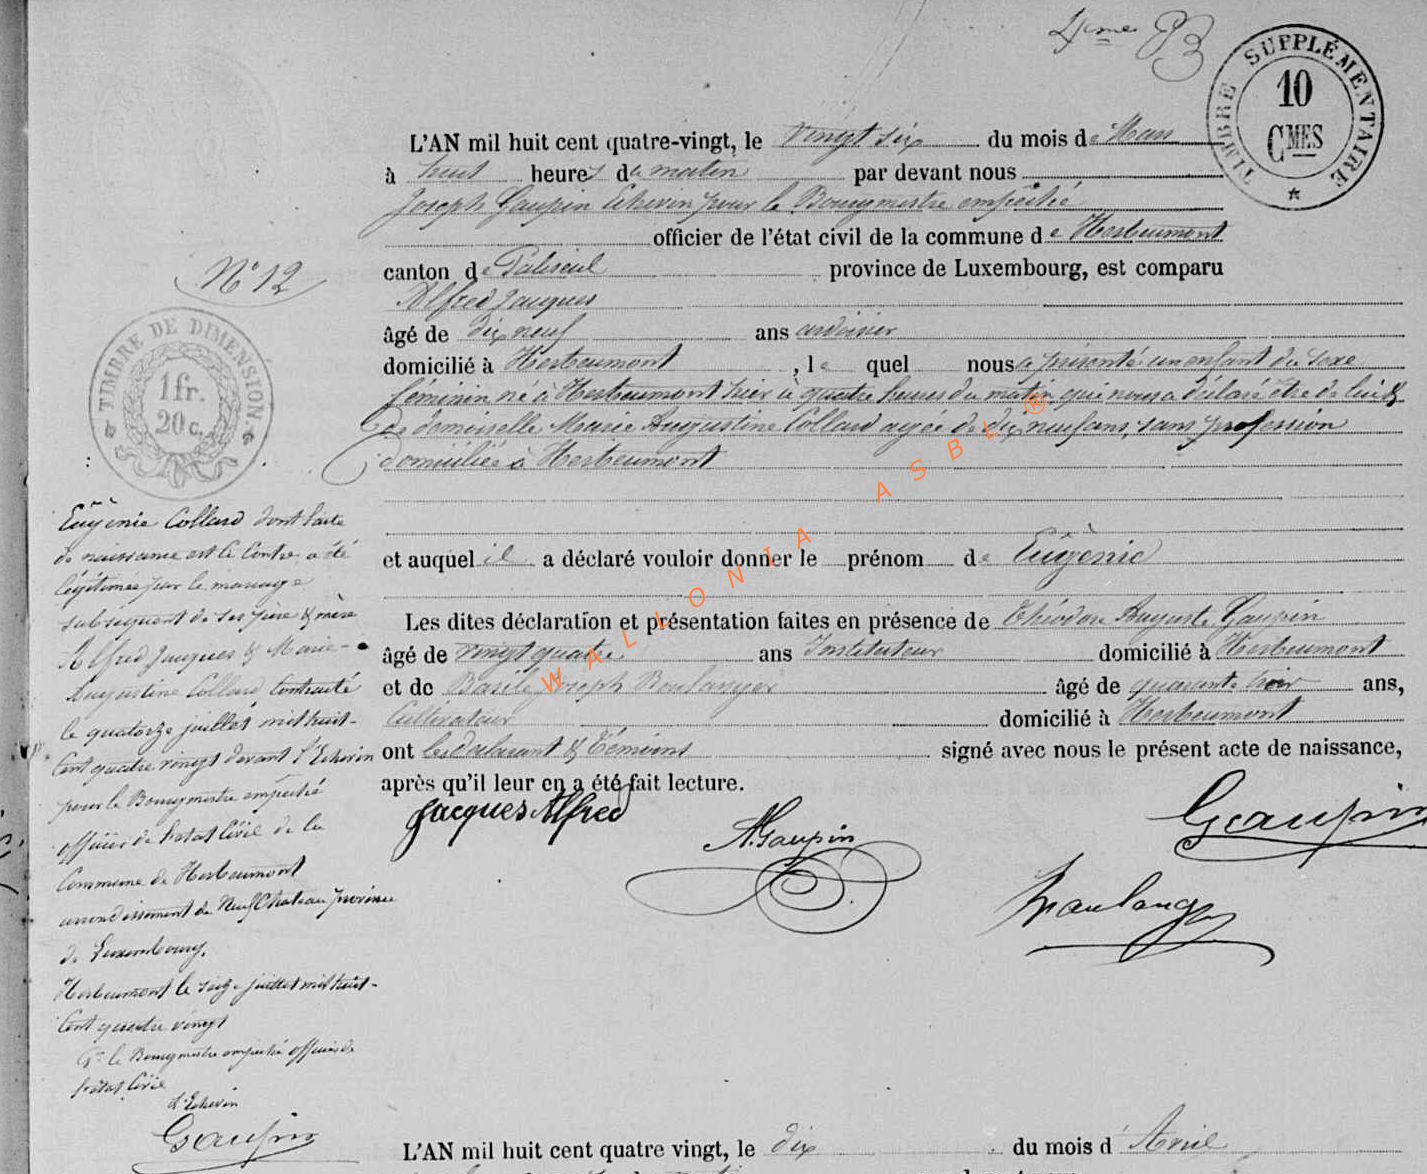 4me B
TIMBRE SUPPLÉMENTAIRE
10
CMES
L'AN mil huit cent quatre-vingt, le vingt six du mois de Mars
à huit heures du matin par devant nous
Joseph Gaupin Echevin pour le Bourgmestre empêché
officier de l'état civil de la commune de Herbeumont
canton de Paliseul province de Luxembourg, est comparu
Alfred Jacques
âgé de dix neuf ans ardoisier
domicilié à Herbeumont, le quel nous a présenté un enfant du sexe
féminin né à Herbeumont hier à quatre heures du matin qui nous a déclaré être de lui &
de demoiselle Marie Augustine Collard agée de dix neuf ans, sans profession
domiciliée à Herbeumont
et auquel il a déclaré vouloir donner le prénom de Eugènie
Les dites déclaration et présentation faites en présence de Théodore Auguste Gaupin
âgé de vingt quatre ans Instituteur domicilié à Herbeumont
et de Basile Joseph Boulanger âgé de quarante trois ans,
Cultivateur domicilié à Herbeumont
ont les déclarant & témoins signé avec nous le présent acte de naissance,
après qu'il leur en a été fait lecture.
Jacques Alfred
A. Gaupin
Gaupin
Boulanger
N° 12
TIMBRE DE DIMENSION.
1 fr.
20 c.
Eugènie Collard dont l'acte
de naissance est ci contre a été
légitimée par le mariage
subséquent de ses père & mère
Alfred Jacques & Marie-
Augustine Collard contracté
le quatorze juillet mil huit-
cent quatre vingt devant l'Echevin
pour le Bourgmestre empêché
officier de l'état Civil de la
Commune de Herbeumont
arrondissement de Neufchateau province
de Luxembourg.
Herbeumont le seize juillet mil huit-
cent quatre vingt
Pr le Bourgmestre empêché officier de
l'état Civil
L'Echevin
Gaupin
WALLONIA ASBL ®
L'AN mil huit cent quatre vingt, le dix du mois d'Avril